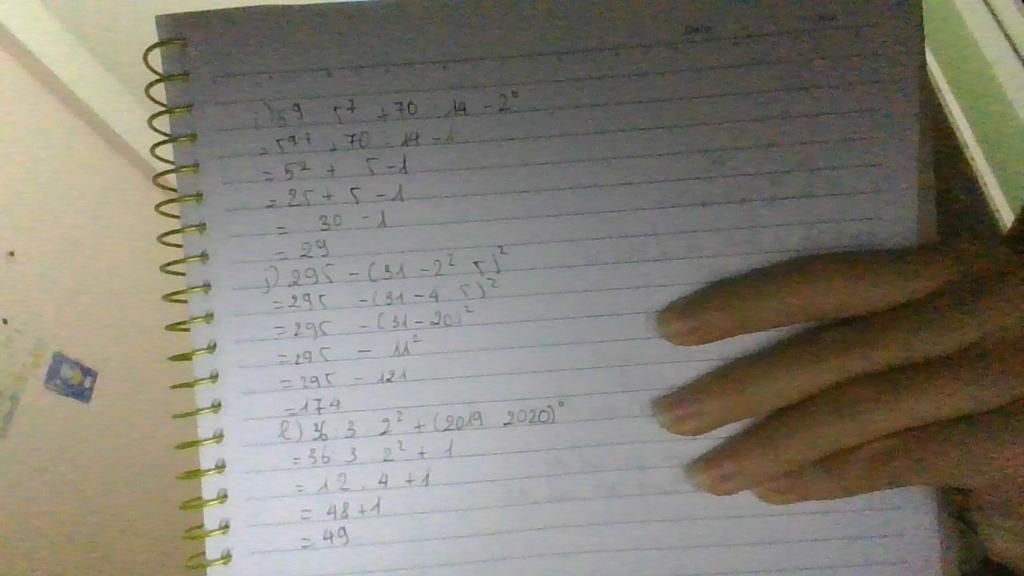 Date
i) 5⁹ 5⁷ + 70 14 - 2⁰
= 5⁹⁻⁷ + 70 14 - 1
= 5² + 5 - 1
= 25 + 5 - 1
= 30 - 1
= 29
j) 295 - (31 - 2² 5)²
= 295 - (31 - 4 5)²
= 295 - (31 - 20)²
= 295 - 11²
= 295 - 121
= 174
l) 36 3 2² + (2019 2020)⁰
= 36 3 . 2² + 1
= 12 . 4 + 1
= 48 + 1
= 49